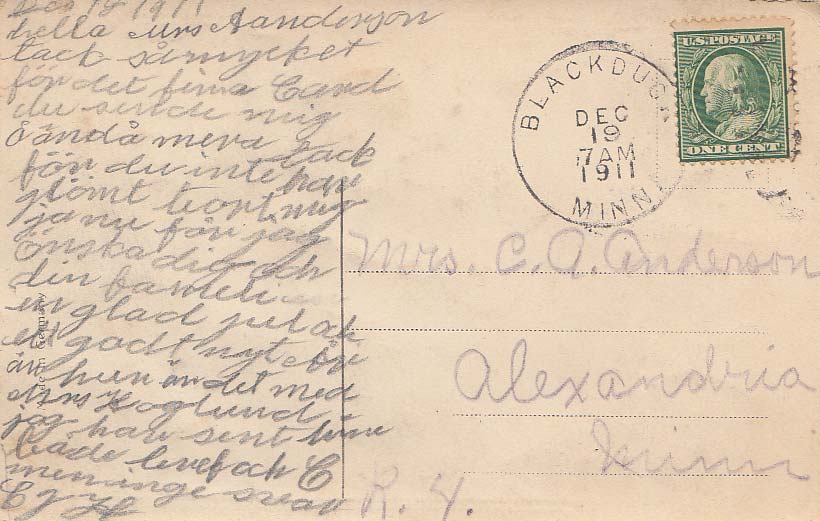 Dec 18 1911
hella Mrs Aanderson
tack så mycket
för det fina Card
du sende mig
o ändå mera tack
för du inte har
glömt bort mig
ja nu får jag
önska dig och
din fameli
en glad jul och
ett godt nytt år
än hur är det med
Mrs Hoglund
jag har sent hine
både bref och C
men inge svar
Made in Germany
U.S. POSTAGE
ONE CENT
BLACKDUCK
DEC
19
7 AM
1911
MINN.
Mrs. C. A. Anderson
Alexandria
Minn
R. 4.